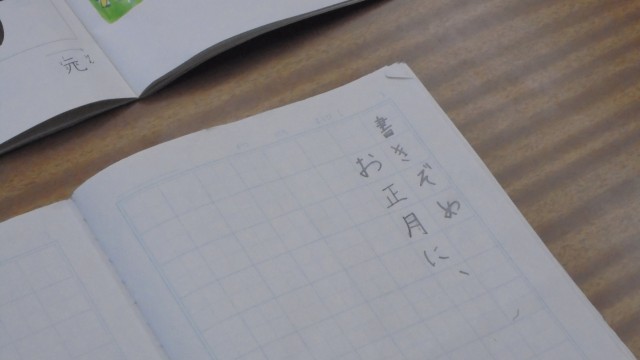 書きぞめ
お正月に、